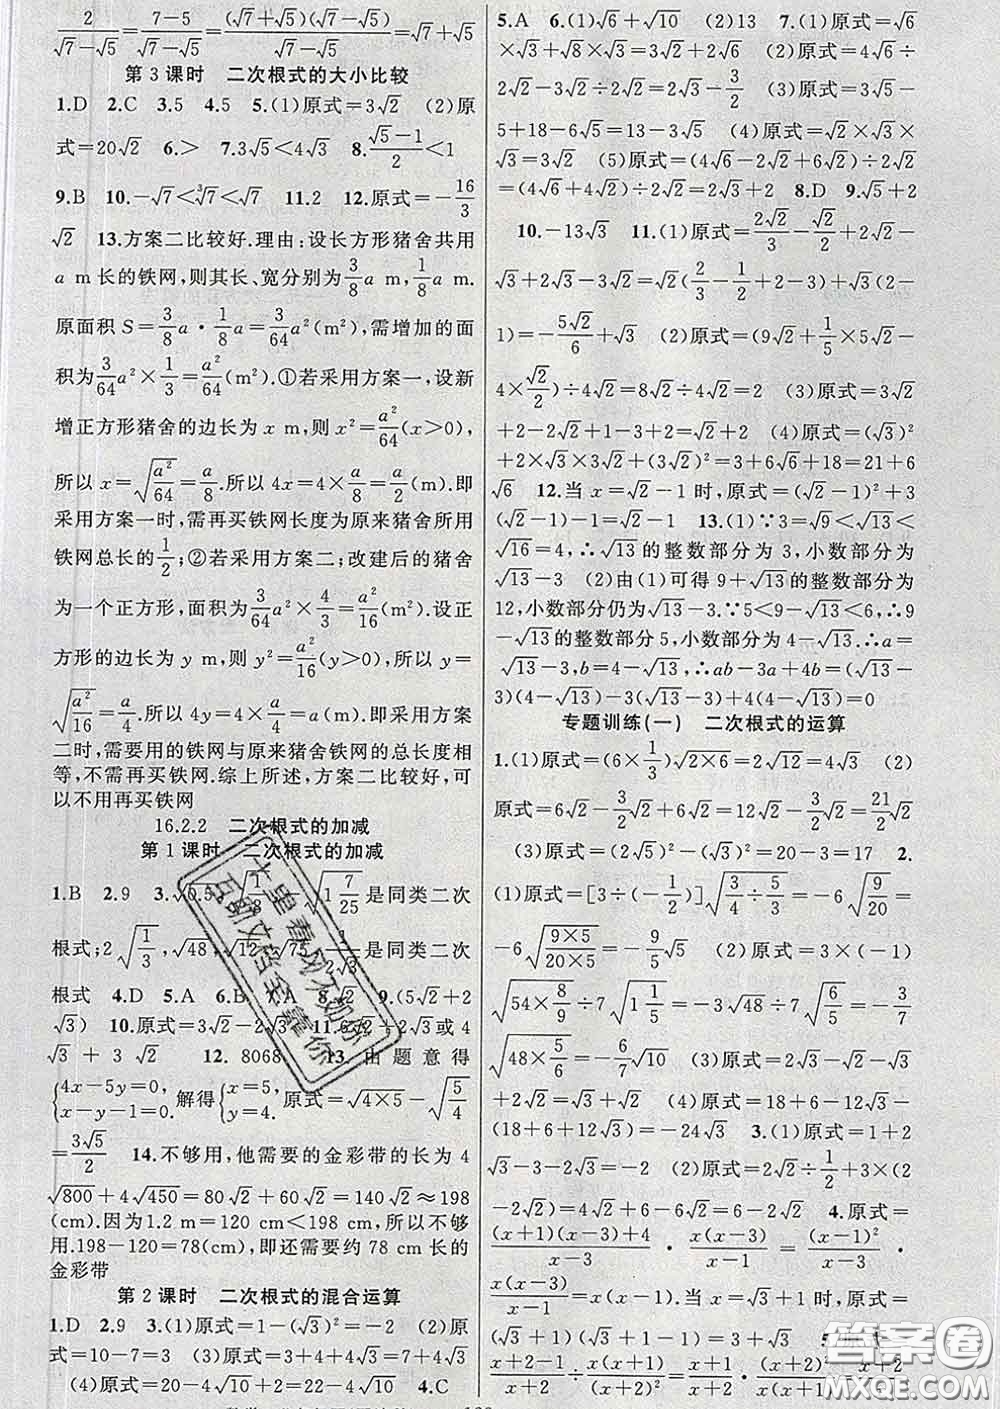 2/(√7−√5)=(7−5)/(√7−√5)=(√7+√5)(√7−√5)/(√7−√5)=√7+√5
第3课时 二次根式的大小比较
1.D 2.C 3.5 4.5 5.(1)原式=3√2 (2)原
式=20√2 6.> 7.3√5<4√3 8.(√5−1)/2<1
9.B 10.−√7<∛7<√7 11.2 12.原式=−16/3
√2 13.方案二比较好.理由:设长方形猪舍共用
a m长的铁网,则其长、宽分别为3/8a m,1/8a m.
原面积S=3/8a·1/8a=3/64a²(m²),需增加的面
积为3/64a²×1/3=a²/64(m²).①若采用方案一,设新
增正方形猪舍的边长为x m,则x²=a²/64(x>0),
所以x=√(a²/64)=a/8.所以4x=4×a/8=a/2(m).即
采用方案一时,需再买铁网长度为原来猪舍所用
铁网总长的1/2;②若采用方案二;改建后的猪舍
为一个正方形,面积为3/64a²×4/3=a²/16(m²).设正
方形的边长为y m,则y²=a²/16(y>0).所以y=
√(a²/16)=a/4.所以4y=4×a/4=a(m).即采用方案
二时,需要用的铁网与原来猪舍铁网的总长度相
等,不需再买铁网.综上所述,方案二比较好,可
以不用再买铁网
16.2.2 二次根式的加减
第1课时 二次根式的加减
1.B 2.9 3.√0.5,√(1/8),√(1 7/25)是同类二次
根式;2√(1/3),√48,√12,√75,1/(2√3)是同类二次
根式 4.D 5.A 6.B 7.A 8.2√2 9.(5√2+2
√3) 10.原式=3√2−2√3 11.6√2+2√3或4
√3+3√2 12.8068 13.由题意得
{4x−5y=0, x−y=1. 解得{x=5, y=4. 原式=√(4×5)−√(5/4)
=3√5/2 14.不够用,他需要的金彩带的长为4
√800+4√450=80√2+60√2=140√2≈198
(cm).因为1.2 m=120 cm<198 cm,所以不够
用.198−120=78(cm),即还需要约78 cm长的
金彩带
第2课时 二次根式的混合运算
1.D 2.9 3.(1)原式=1−(√3)²=−2 (2)原
式=10−7=3 (3)原式=3+4+4√3=7+4√3
(4)原式=20−4√10+2=22−4√10 4.C
5.A 6.(1)√6+√10 (2)13 7.(1)原式=√6
×√3+√8×√3=3√2+2√6 (2)原式=4√6÷
2√2−3√2÷2√2=2√3−3/2 (3)原式=3√5−
5+18−6√5=13−3√5 (4)原式=√2×√3×
√3=3√2 (5)原式=(4√6−2√6+6√2)÷2√2
=(4√6+4√2)÷2√2=2√3+2 8.D 9.√5+2
10.−13√3 11.(1)原式=2√2/3−√2/2+2√3−2√2−
√3+2√3−√2=(2/3−1/2+2−3)√2+√3(2−
1)=−5√2/6+√3 (2)原式=(9√2+1/5×5√2−
4×√2/2)÷4√2=8√2÷4√2=2 (3)原式=3√2
+2−2√2+1−3+2=√2+2 (4)原式=(√3)²
+2√2×√3×3√2+(3√2)²=3+6√6+18=21+6
√6 12.当x=√2−1时,原式=(√2−1)²+3
(√2−1)−1=√2−1 13.(1)∵3=√9<√13<
√16=4,∴√13的整数部分为3,小数部分为
√13−3 (2)由(1)可得9+√13的整数部分为
12,小数部分仍为√13−3.∵5<9−√13<6,∴9
−√13的整数部分5,小数部分为4−√13.∴a=
√13−3,b=4−√13.∴ab−3a+4b=(√13−
3)(4−√13)−3(√13−3)+4(4−√13)=0
专题训练(一) 二次根式的运算
1.(1)原式=(6×1/3)√(2×6)=2√12=4√3 (2)
原式=6√2−3/2√2+6√2=12√2−3/2√2=21/2√2
(3)原式=(2√5)²−(√3)²=20−3=17 2.
(1)原式=[3÷(−1/2)]√(3/4÷5/3)=−6√(9/20)=
−6√((9×5)/(20×5))=−9/5√5 (2)原式=3×(−1)
√(54×8/9)÷7√(1 1/5)=−3√48÷7√(6/5)=−3/7
√(48×5/6)=−6/7√10 (3)原式=√3−√2−√3
+2√2=√3+√2 (4)原式=18+6−12√3−
(18+6+12√3)=−24√3 3.(1)原式=1+2
√3−3−2√3=−2 (2)原式=2√2÷1/2+3×(2
−2√2)=4√2+6−6√2=6−2√2 4.原式=
(x(x−3)+4)/(x−3)·x(x−3)/(x−1)=(x−1)²/(x−3)·
x(x−3)/(x−1)=x(x−1).当x=√3+1时,原式=
(√3+1)(√3+1−1)=3+√3
十里春风不如你
互助文档全靠你
答案圈
MXQE.COM